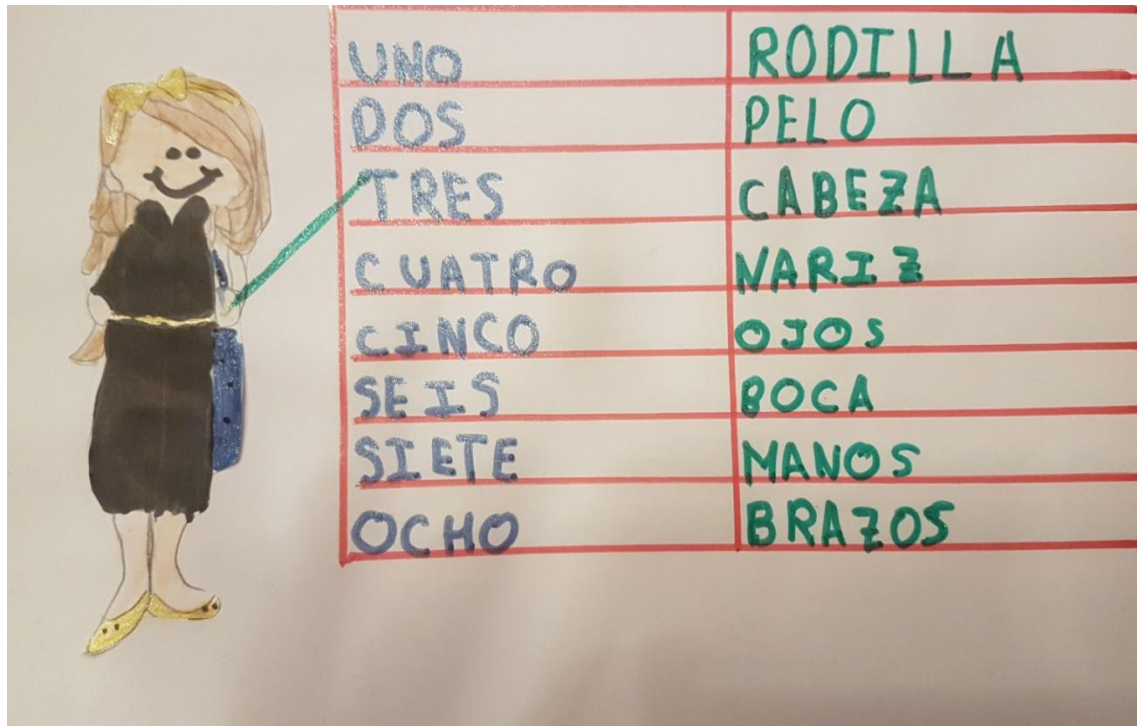 UNO RODILLA
DOS PELO
TRES CABEZA
CUATRO NARIZ
CINCO OJOS
SEIS BOCA
SIETE MANOS
OCHO BRAZOS